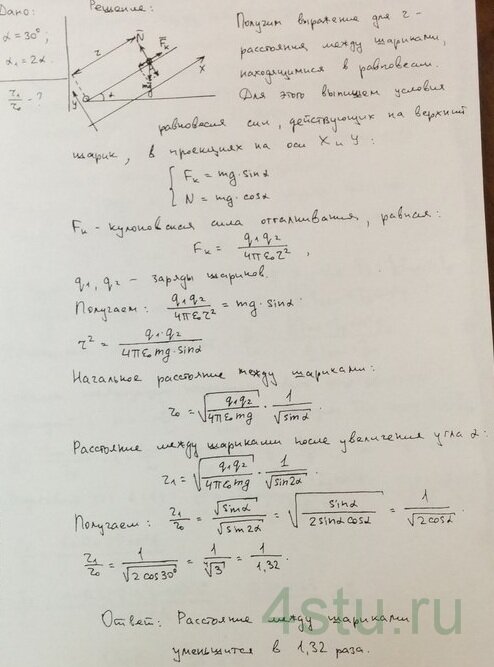 Дано:
Решение:
α = 30°;
α₁ = 2α.
r₁/r₀ - ?
r
N
Fₖ
mg
x
y
α
Получим выражение для r -
расстояния между шариками,
находящимися в равновесии.
Для этого выпишем условия
равновесия сил, действующих на верхний
шарик, в проекциях на оси X и Y:
{ Fₖ = mg·sinα
N = mg·cosα
Fₖ - кулоновская сила отталкивания, равная:
Fₖ = q₁q₂/4πε₀r²,
q₁, q₂ - заряды шариков.
Получаем: q₁q₂/4πε₀r² = mg·sinα
r² = q₁·q₂/4πε₀mg·sinα
Начальное расстояние между шариками:
r₀ = √(q₁q₂/4πε₀mg) · 1/√sinα.
Расстояние между шариками после увеличения угла α:
r₁ = √(q₁q₂/4πε₀mg) · 1/√sin2α.
Получаем: r₁/r₀ = √sinα/√sin2α = √(sinα/2sinαcosα) = 1/√2cosα.
r₁/r₀ = 1/√2cos30° = 1/⁴√3 = 1/1,32.
Ответ: Расстояние между шариками
уменьшится в 1,32 раза.
4stu.ru